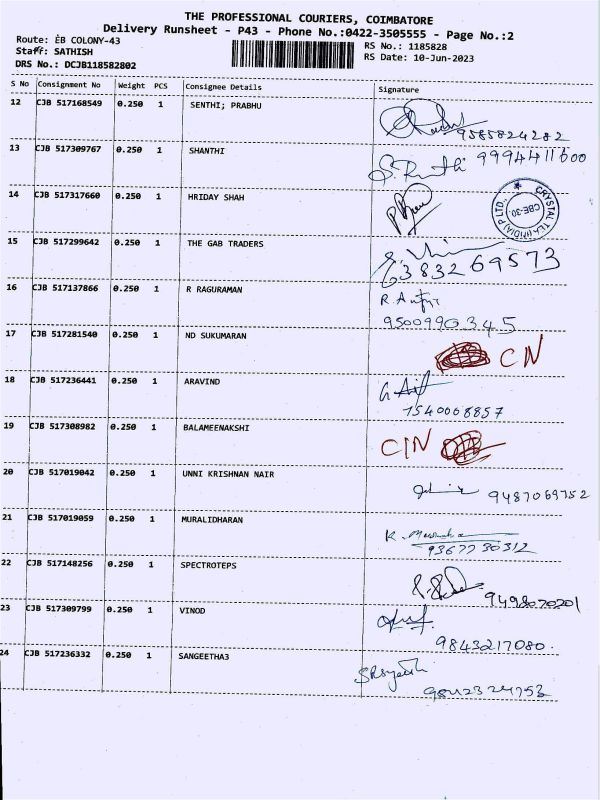 THE PROFESSIONAL COURIERS, COIMBATORE
Delivery Runsheet - P43 - Phone No.:0422-3505555 - Page No.:2
Route: EB COLONY-43 RS No.: 1185828
Staff: SATHISH RS Date: 10-Jun-2023
DRS No.: DCJB118582802
S No Consignment No Weight PCS Consignee Details Signature
12 CJB 517168549 0.250 1 SENTHI; PRABHU
9585824282
13 CJB 517309767 0.250 1 SHANTHI 9994411600
14 CJB 517317660 0.250 1 HRIDAY SHAH
CBE-30.
15 CJB 517299642 0.250 1 THE GAB TRADERS
6383269573
16 CJB 517137866 0.250 1 R RAGURAMAN
9500990345
17 CJB 517281540 0.250 1 ND SUKUMARAN CIN
18 CJB 517236441 0.250 1 ARAVIND
7540008857
19 CJB 517308982 0.250 1 BALAMEENAKSHI CIN
20 CJB 517019042 0.250 1 UNNI KRISHNAN NAIR
9487069752
21 CJB 517019059 0.250 1 MURALIDHARAN
9367730312
22 CJB 517148256 0.250 1 SPECTROTEPS
9498070201
23 CJB 517309799 0.250 1 VINOD
9843217080.
24 CJB 517236332 0.250 1 SANGEETHA3